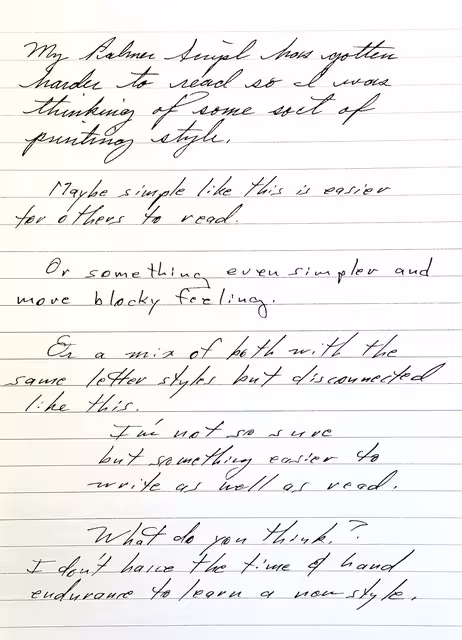 My Palmer Script has gotten
harder to read so I was
thinking of some sort of
printing style.
Maybe simple like this is easier
for others to read.
Or something even simpler and
more blocky feeling.
Or a mix of both with the
same letter styles but disconnected
like this.
I'm not so sure
but something easier to
write as well as read.
What do you think?
I don't have the time of hand
endurance to learn a new style.